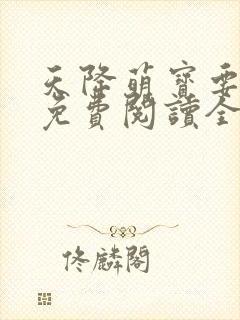 天降萌寶要
免費閱讀全
佟麟閣